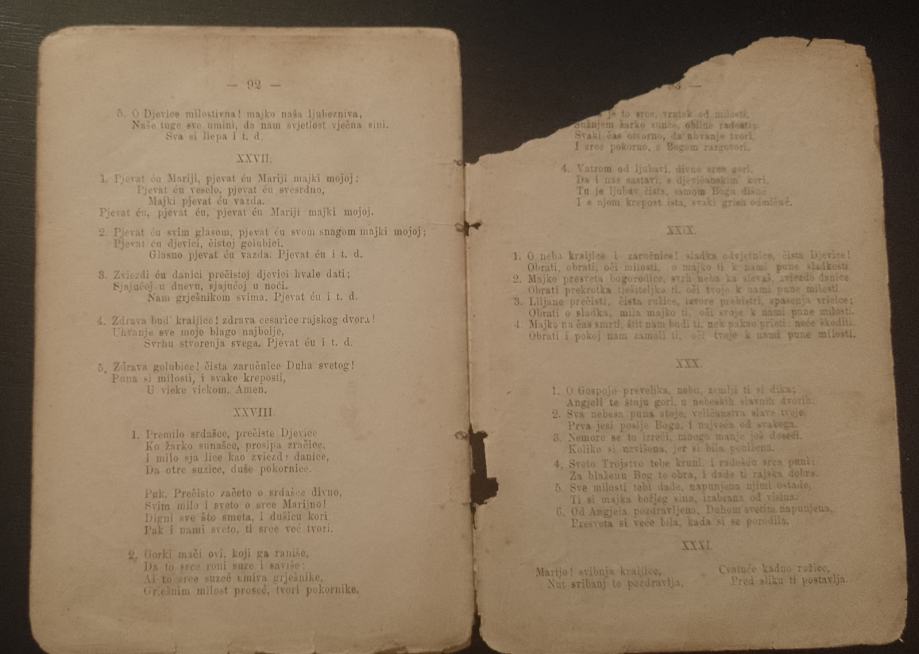 — 92 —
5. O Djevice milostivna! majko naša ljubezniva,
Naše tuge sve umini, da nam svjetlost vječna sini.
Sva si liepa i t. d.
XXVII.
1. Pjevat ću Mariji, pjevat ću Mariji majki mojoj;
Pjevat ću veselo, pjevat ću svesrdno,
Majki pjevat ću vazda.
Pjevat ću, pjevat ću, pjevat ću Mariji majki mojoj.
2. Pjevat ću svim glasom, pjevat ću svom snagom majki mojoj;
Pjevat ću djevici, čistoj golubici.
Glasno pjevat ću vazda. Pjevat ću i t. d.
3. Zviezdi ću danici prečistoj djevici hvale dati;
Sjajućoj u dnevu, sjajućoj u noći.
Nam grješnikom svima. Pjevat ću i t. d.
4. Zdrava bud' kraljice! zdrava cesarice rajskog dvora!
Ufanje sve moje blago najbolje,
Svrhu stvorenja svega. Pjevat ću i t. d.
5. Zdrava golubice! čista zaručnice Duha svetog!
Puna si milosti, i svake kreposti,
U vieke viekom. Amen.
XXVIII.
1. Premilo srdašce, prečiste Djevice
Ko žarko sunašce, prosipa zračice,
I milo sja lice kao zviezda danice,
Da otre suzice, duše pokornice.
Puk, Prečisto začeto o srdašce divno,
Svim milo i sveto o srce Marijno!
Digni sve što smeta, i dušicu kori
Pak i nami sveto, ti srce već tvori.
2. Gorki mači ovi, koji ga raniše,
Da to srce roni suze i saviše:
Al to srce suzeć umiva grješnike,
Grješnim milost proseć, tvori pokornike.
je to srce, vratak od milosti,
žarko sunce, obilne radosti,
Svaki čas otvorno, da ufvanje tvori,
I srce pokorno, s Bogom razgovori.
4. Vatrom od ljubavi, divno srce gori,
Da i nas sastavi, s djevičanskim kori,
Tu je ljubav čista, samom Bogu dične
I s njom krepost ista, svaki grieh odmiče.
XXIX.
1. O neba kraljice i zaručnice! sladka odvjetnice, čista Djevice!
Obrati, obrati, oči milosti, o majko ti k nami pune sladkosti.
2. Majko presveta bogorodice, svrh neba ka sievaš, zviezdo danice
Obrati prekrotka tješiteljka ti, oči tvoje k nami pune milosti.
3. Liljane prečisti, čista ružice, izvore prebistri, spasenja vrielce;
Obrati o sladka, mila majko ti, oči svoje k nami pune milosti.
4. Majko na čas smrti, štit nam budi ti, nek pakao prieti, neće škoditi.
Obrati i pokoj nam zamoli ti, oči tvoje k nami pune milosti.
XXX.
1. O Gospojo prevelika, nebu, zemlji ti si dika;
Angjeli te štuju gori, u nebeskih slavnih dvorih.
2. Sva nebesa puna stoje, veličanstva slave tvoje,
Prva jesi poslje Boga, i najveća od svakega.
3. Nemore se to izreći, mnogo manje još doseći.
Koliko si uzvišena, jer si bila ponižena.
4. Sveto Trojstvo tebe kruni, i radošću srca puni:
Za blaženu Bog te obra, i dade ti rajska dobra.
5. Sve milosti tebi dade, napunjena njimi ostade,
Ti si majka božjeg sina, izabrana od visina.
6. Od Angjela pozdravljena, Duhom svetim napunjena,
Presveta si veće bila, kada si se porodila.
XXXI.
Marijo! svibnja kraljice,
Nut svibanj te pozdravlja,
Cvatuće kadno rožice,
Pred sliku ti postavlja.